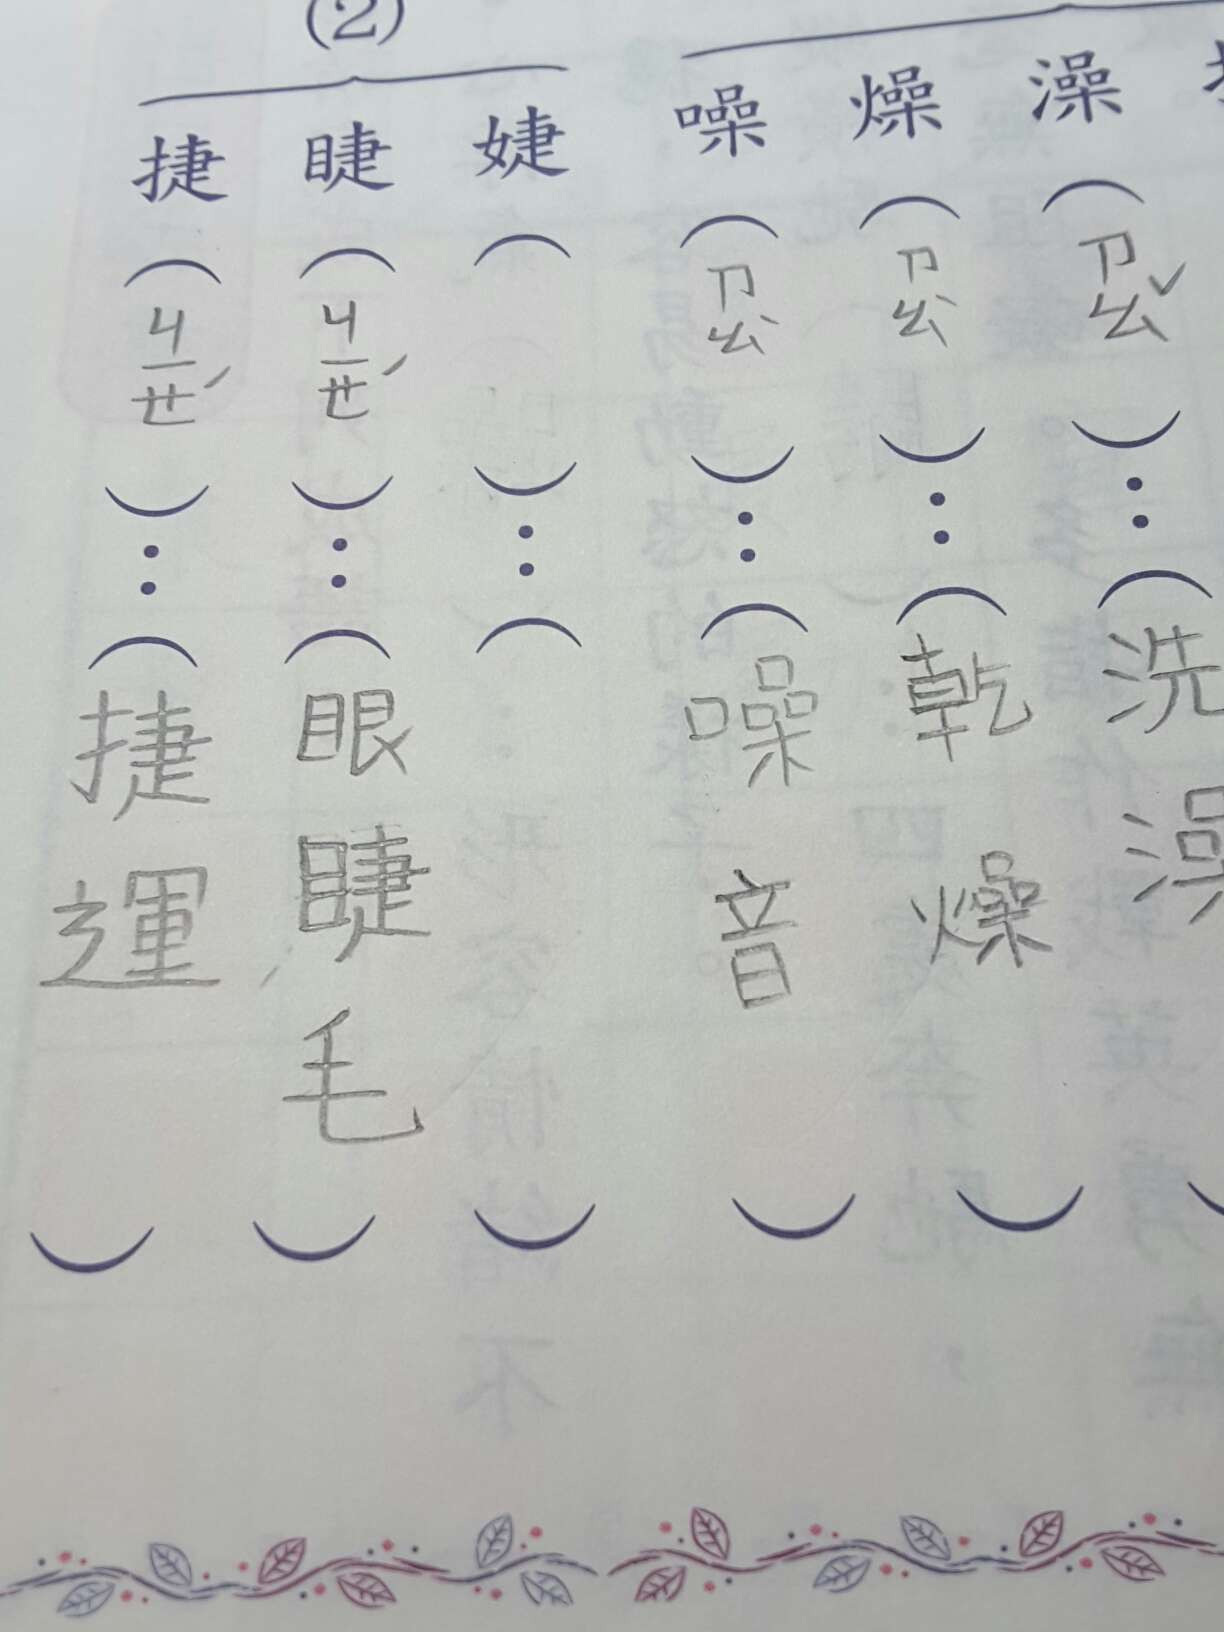 (2)
澡(ㄗㄠˇ):(洗澡
燥(ㄗㄠˋ):(乾燥)
噪(ㄗㄠˋ):(噪音)
婕( ):( )
睫(ㄐㄧㄝˊ):(眼睫毛)
捷(ㄐㄧㄝˊ):(捷運)